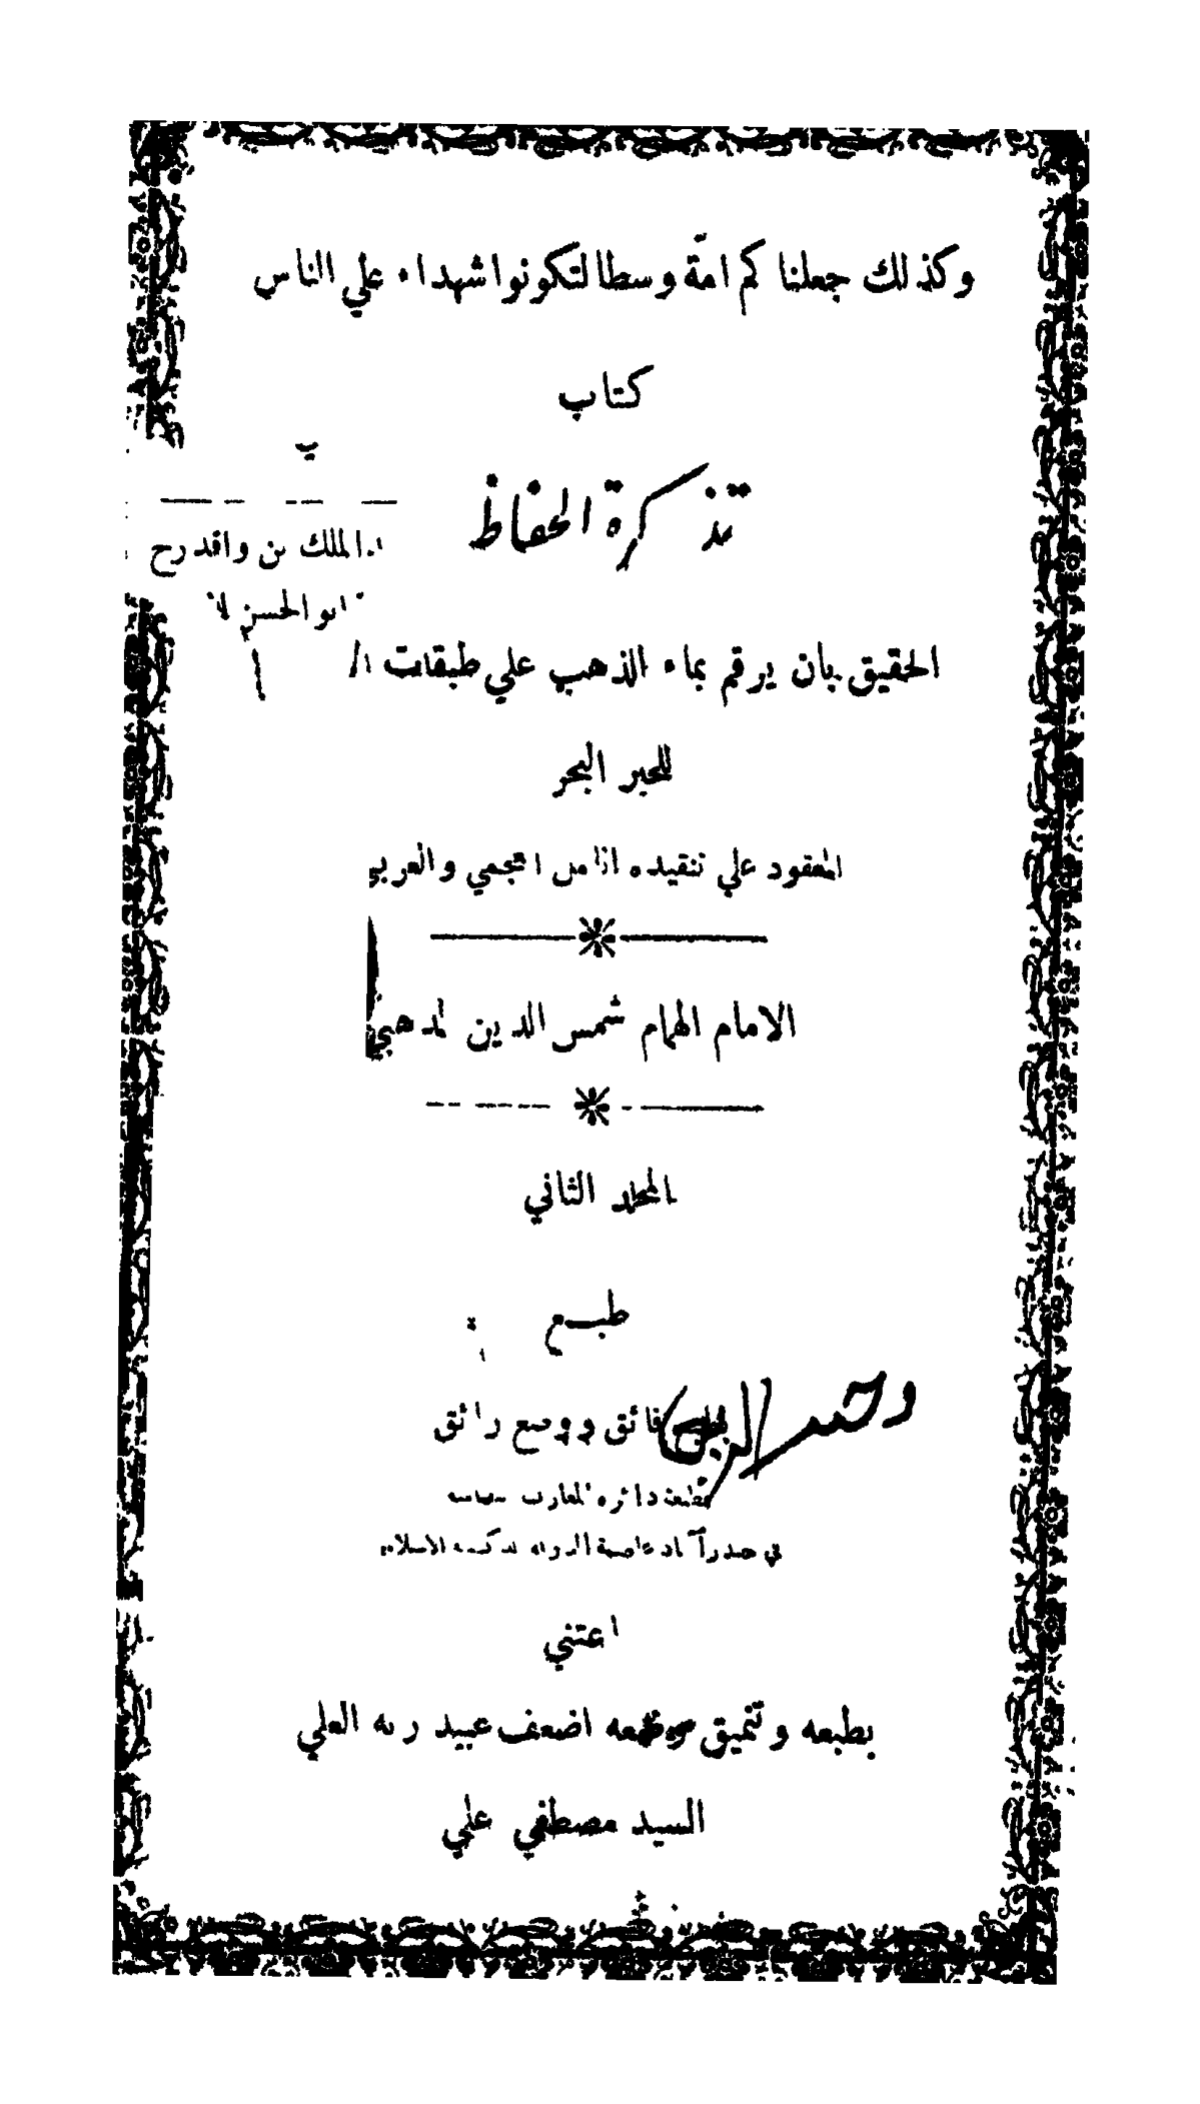 وكذلك جعلنا كم امّة وسطا لتكونوا شهداء علي الناس
كتاب
تذكرة الحفاظ
الملك بن واقد رح
ابو الحسن
الحقيق بان يرقم بماء الذهب علي طبقات
للحبر البحر
المعقود علي تنقيده انامل العجمي والعربي
الامام الهمام شمس الدين الذهبي
المجلد الثاني
طبع
بطبع فائق ووضع رائق
بمطبعة دائرة المعارف
في حيدرآباد عاصمة الدولة الاسلامية
اعتني
بطبعه وتنميق وضعه اضعف عبيد ربه العلي
السيد مصطفي علي